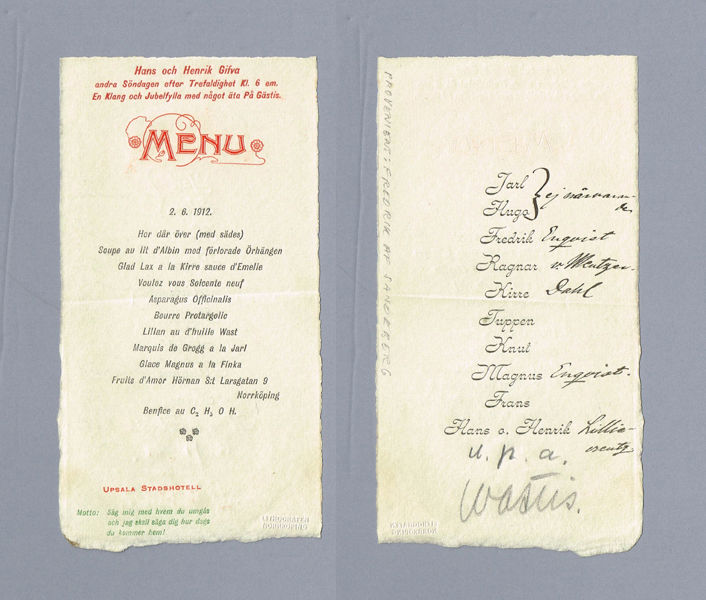 Hans och Henrik Gifva
andra Söndagen efter Trefaldighet Kl. 6 em.
En Klang och Jubelfylla med något äta På Gästis.
MENU
2. 6. 1912.
Hor där örer (med sädes)
Soupe au lit d'Albin med förlorade Örhängen
Glad Lax a la Kirre sauce d'Emelie
Voulez vous Solcente neuf
Asparagus Officinalis
Beurre Protargolic
Lilian au d'huille Wast
Marquis de Grogg a la Jarl
Glace Magnus a la Finka
Fruits d'Amor Hörnan S:t Larsgatan 9
Norrköping
Benfice au C2 H5 O H.
UPSALA STADSHOTELL
Motto: Säg mig med hvem du umgås
och jag skall säga dig hur dags
du kommer hem!
LITHOGRAFEN
NORRKÖPING
PROVENIENS: FREDRIK AF SANDEBERG
Jarl } ej närvaran-
Hugo } de
Fredrik Enqvist
Ragnar v. Mentzer.
Kirre Dahl
Tuppen
Knut
Magnus Enqvist.
Frans
Hans o. Henrik Lillie-
creutz
u. p. a.
Wastis.